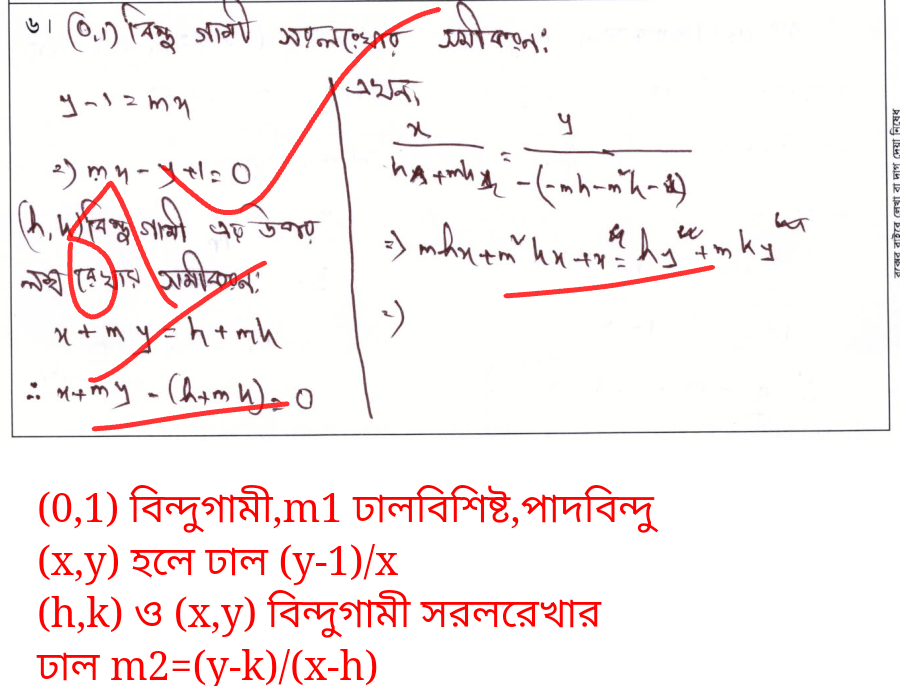 ৬। (0,1) বিন্দু গামী সরলরেখার সমীকরণ:
y-1=mx
⇒) mx-y+1=0
(h,k) বিন্দু গামী এর উপর
লম্ব রেখার সমীকরণ:
x+my=h+mk
∴ x+my-(h+mk)=0
এখন,
⇒) mhx+m²kx+x = hy + mky
⇒)
বক্সের বাইরে লেখা বা দাগ দেয়া নিষেধ
(0,1) বিন্দুগামী,m1 ঢালবিশিষ্ট,পাদবিন্দু
(x,y) হলে ঢাল (y-1)/x
(h,k) ও (x,y) বিন্দুগামী সরলরেখার
ঢাল m2=(y-k)/(x-h)